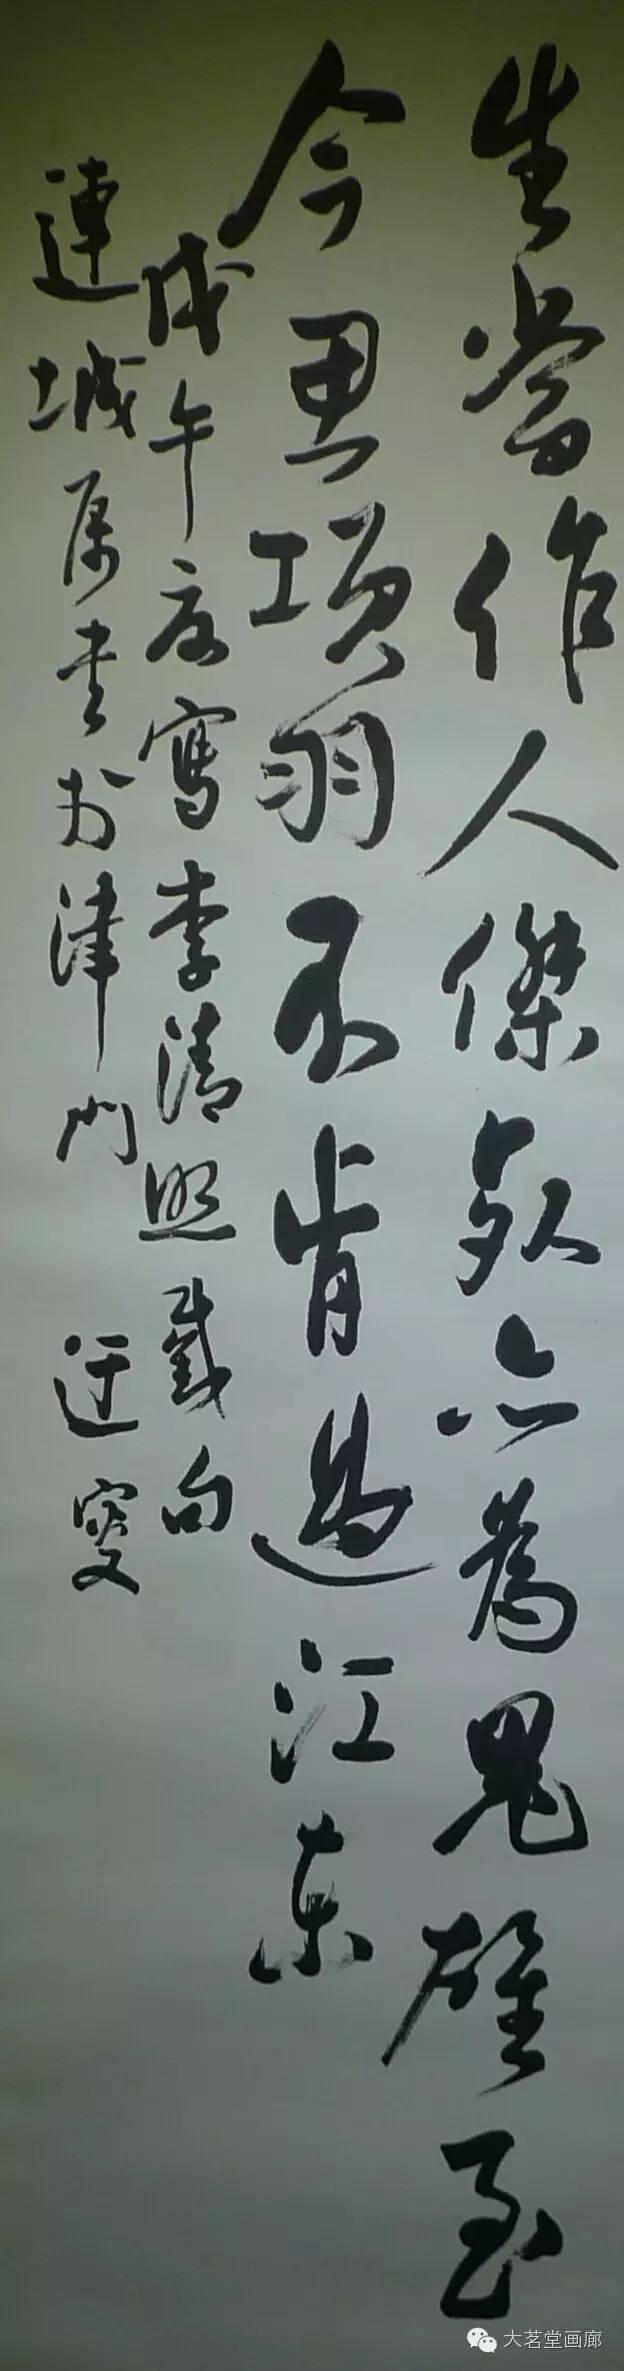 生當作人傑死亦為鬼雄至
今思項羽不肯過江东
戊午夏寫李清照截句
連城属書於津門 迂叟
大茗堂画廊